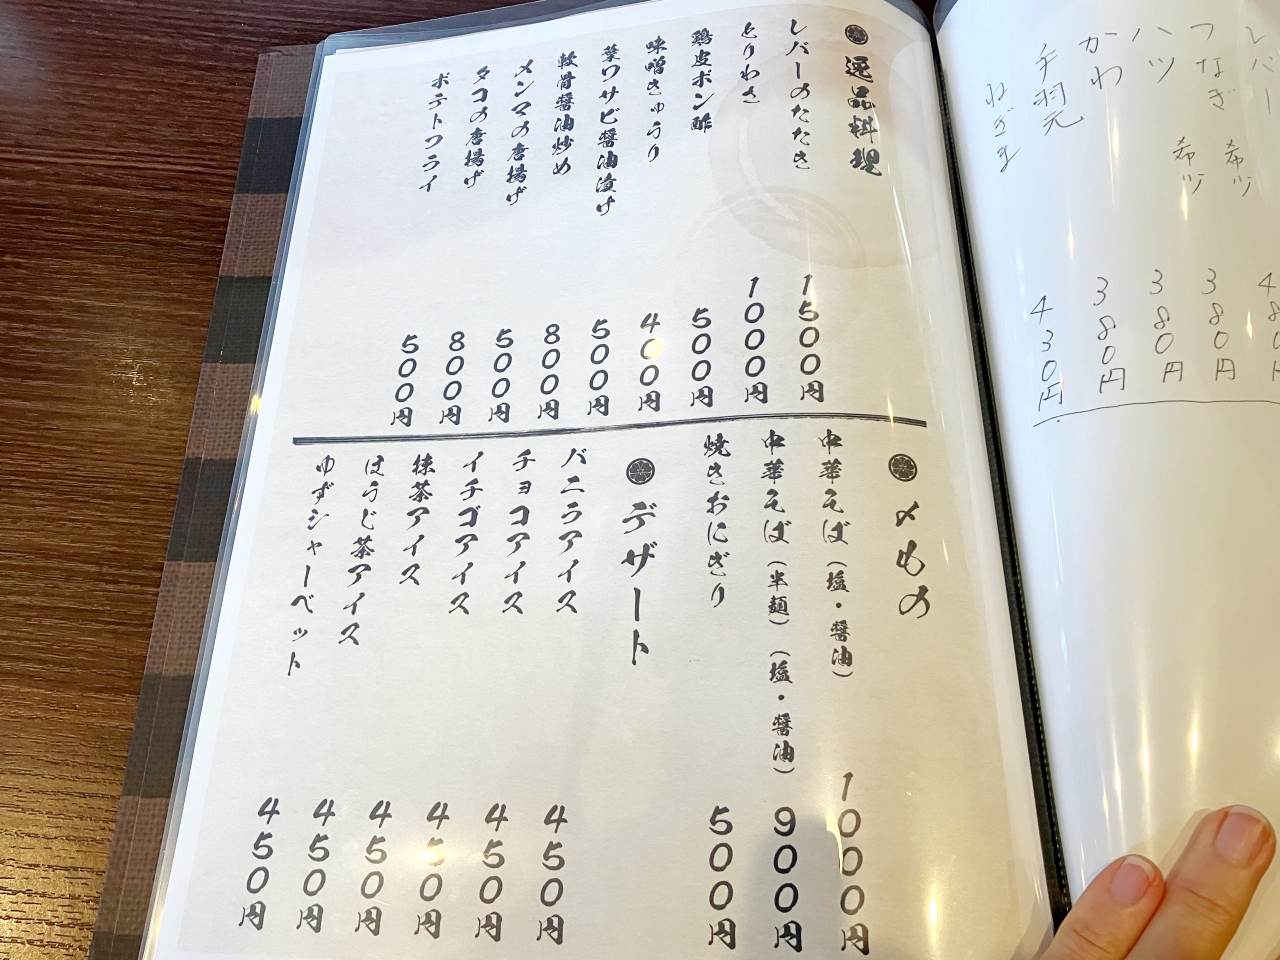 レバー
480円
つなぎ 希少
380円
ハツ 希少
380円
かわ
380円
手羽元
430円
ねぎま
逸品料理
レバーのたたき
1500円
とりわさ
1000円
鶏皮ポン酢
500円
味噌きゅうり
400円
葉ワサビ醤油漬け
500円
軟骨醤油炒め
800円
メンマの唐揚げ
500円
タコの唐揚げ
800円
ポテトフライ
500円
〆もの
中華そば(塩・醤油)
1000円
中華そば(半麺)(塩・醤油)
900円
焼きおにぎり
500円
デザート
バニラアイス
450円
チョコアイス
450円
イチゴアイス
450円
抹茶アイス
450円
ほうじ茶アイス
450円
ゆずシャーベット
450円